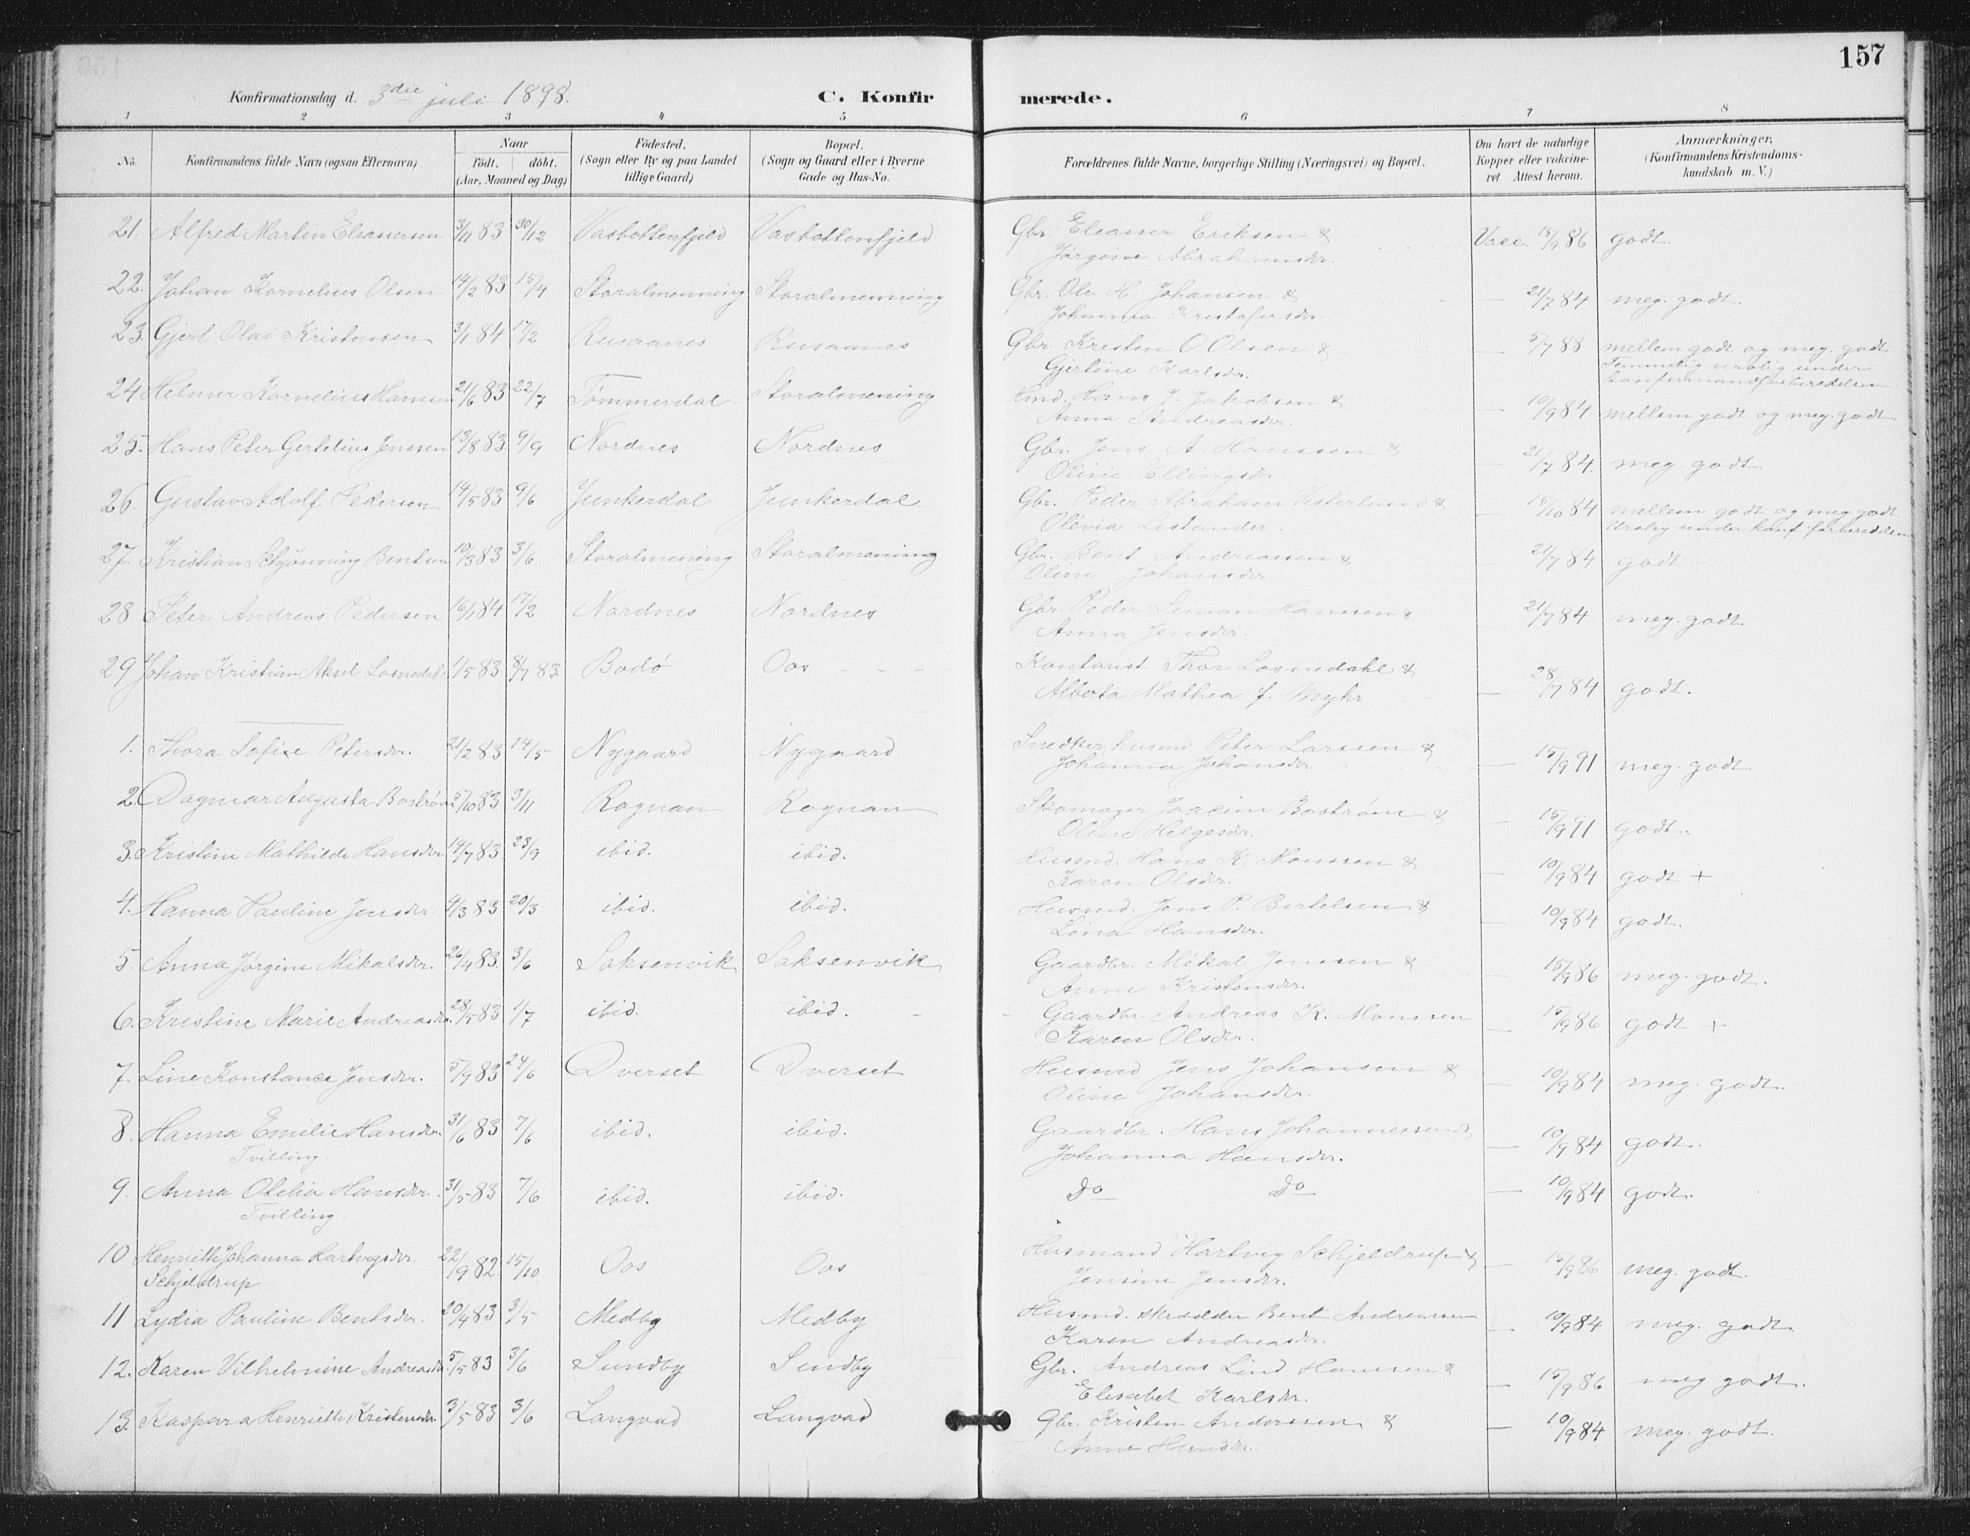 157
Konfirmationsdag d. 3die juli 1898.
C. Konfirmerede.
1 2 3 4 5 6 7 8
No. Konfirmandens fulde Navn (ogsaa Efternavn) Naar født. døbt. (Aar, Maaned og Dag) Fødested. (Sogn eller By og paa Landet tillige Gaard) Bopæl. (Sogn og Gaard eller i Byerne Gade og Hus-No. Forældrenes fulde Navne, borgerlige Stilling (Næringsvei) og Bopæl. Om havt de naturlige Kopper eller vakcineret Attest herom. Anmærkninger. (Konfirmandens Kristendomskundskab m. V.)
21. Alfred Martin Eleassersen 3/11 83 30/12 Vasbottenfjeld Vasbottenfjeld Gbr. Eleasser Eriksen & Vacc. 15/9 86 godt.
Jørgine Abrahamsdr.
22. Johan Kornelius Olsen 14/2 83 15/4 Storalmenning Storalmenning Gbr. Ole H. Johansen & — 21/7 84 meg. godt.
Johanna Kristofersdr.
23. Gjert Olai Kristensen 3/1 84 17/2 Rusaanes Rusaanes Gbr. Kristen O Olsen & — 5/7 88 mellem godt og meg. godt
Gjertine Karlsdr. Temmelig urolig under
konfirmandforberedelsen
24 Helmer Kornelius Hansen 21/6 83 22/7 Tømmerdal Storalmening Hmd. Hans J. Jakobsen & — 10/9 84 mellem godt og meg. godt
Anna Andreasdr.
25. Hans Peter Gertelius Jenssen 13/8 83. 9/9 Nordnes Nordnes Gbr. Jens A. Hanssen & — 21/7 84. meg. godt.
Oline Ellingsdr.
26. Gustav Adolf Pedersen 14/5 83 9/6 Junkerdal Junkerdal Gbr. Peder Abraham Vesterlund & — 15/10 84 mellem godt og meg godt
Olevia Lestander. Urolig under konf. forberedelsen
27 Kristian Schjønning Bentsen 10/3 83 3/6 Storalmening Storalmening Gbr. Bent Andreassen & — 21/7 84 godt +
Oline Johansdr.
28 Peter Andreas Pedersen 16/1 84 17/2 Nordnes Nordnes Gbr. Peder Simon Hanssen & — 21/7 84 meg. godt.
Anna Jensdr.
29 Johan Kristian Aksel Losnedahl 1/5 83 8/7 83. Bodø Oos Kontorist Thor Losnedahl & — 28/7 84 godt.
Alberta Mathea f. Myhr
1. Thora Sofie Petersdr. 21/2 83 14/5 Nygaard Nygaard Snedker, husmd Peter Larssen & — 15/9 91 meg. godt.
Johanna Johansdr
2. Dagmar Augusta Bostrøm 5/10 83 3/11 Rognan Rognan Skomager Joakim Bostrøm & — 15/9 91 godt.
Oline Helgesdr.
3. Kristine Mathilde Hansdr. 14/7 83. 23/9 ibid. ibid. Husmd. Hans K. Monssen & — 10/9 84 godt +
Karen Olsdr.
4. Hanna Pauline Jensdr. 4/3 83 20/3 ibid. ibid. Husmd. Jens P. Bertelsen & — 10/9 84 godt.
Lina Hansdr.
5. Anna Jørgine Mikalsdr. 26/4 83. 3/6 Saksenvik Saksenvik Gaardbr. Mikal Jenssen & — 15/9 86 meg. godt.
Anne Kristensdr.
6. Kristine Marie Andreasdr. 28/5 83 1/7 ibid. ibid. Gaardbr. Andreas K. Monssen — 15/9 86 godt +
Karen Olsdr.
7. Line Konstanse Jensdr. 5/9 83 24/6 Dverset Dverset Husmd Jens Johansen & — 10/9 84 meg. godt.
Oline Johansdr.
8. Hanna Emilie Hansdr. 31/6 83 7/6 ibid. ibid. Gaardbr. Hans Johannessen & — 10/9 84 godt.
Tvilling. Johanna Hansdr.
9. Anna Otelia Hansdr. 31/5 83 7/6 ibid. ibid. Do Do — 10/9 84 godt.
Tvilling.
10 Henriette Johanna Hartvigsdr. 22/9 82. 15/10 Oos Oos Husmand Hartvig Schjeldrup & — 15/9 86 meg. godt.
Schjeldrup Jensine Jensdr.
11 Lydia Pauline Bentsdr. 20/4 83 3/5 Medby Medby Husmd. skrædder Bent Andreassen — 10/9 84 meg. godt.
Karen Andreasdr.
12. Karen Vilhelmine Andreasdr 5/5 83 3/6 Sundby Sundby Gbr. Andreas Lind Hanssen & — 15/9 86 meg godt.
Elisabet Karlsdr.
13. Kaspara Henriette Kristensdr. 3/5 83 3/6 Langvad Langvad Gbr. Kristen Anderssen & — 10/9 84 meg. godt.
Anne Hansdr.